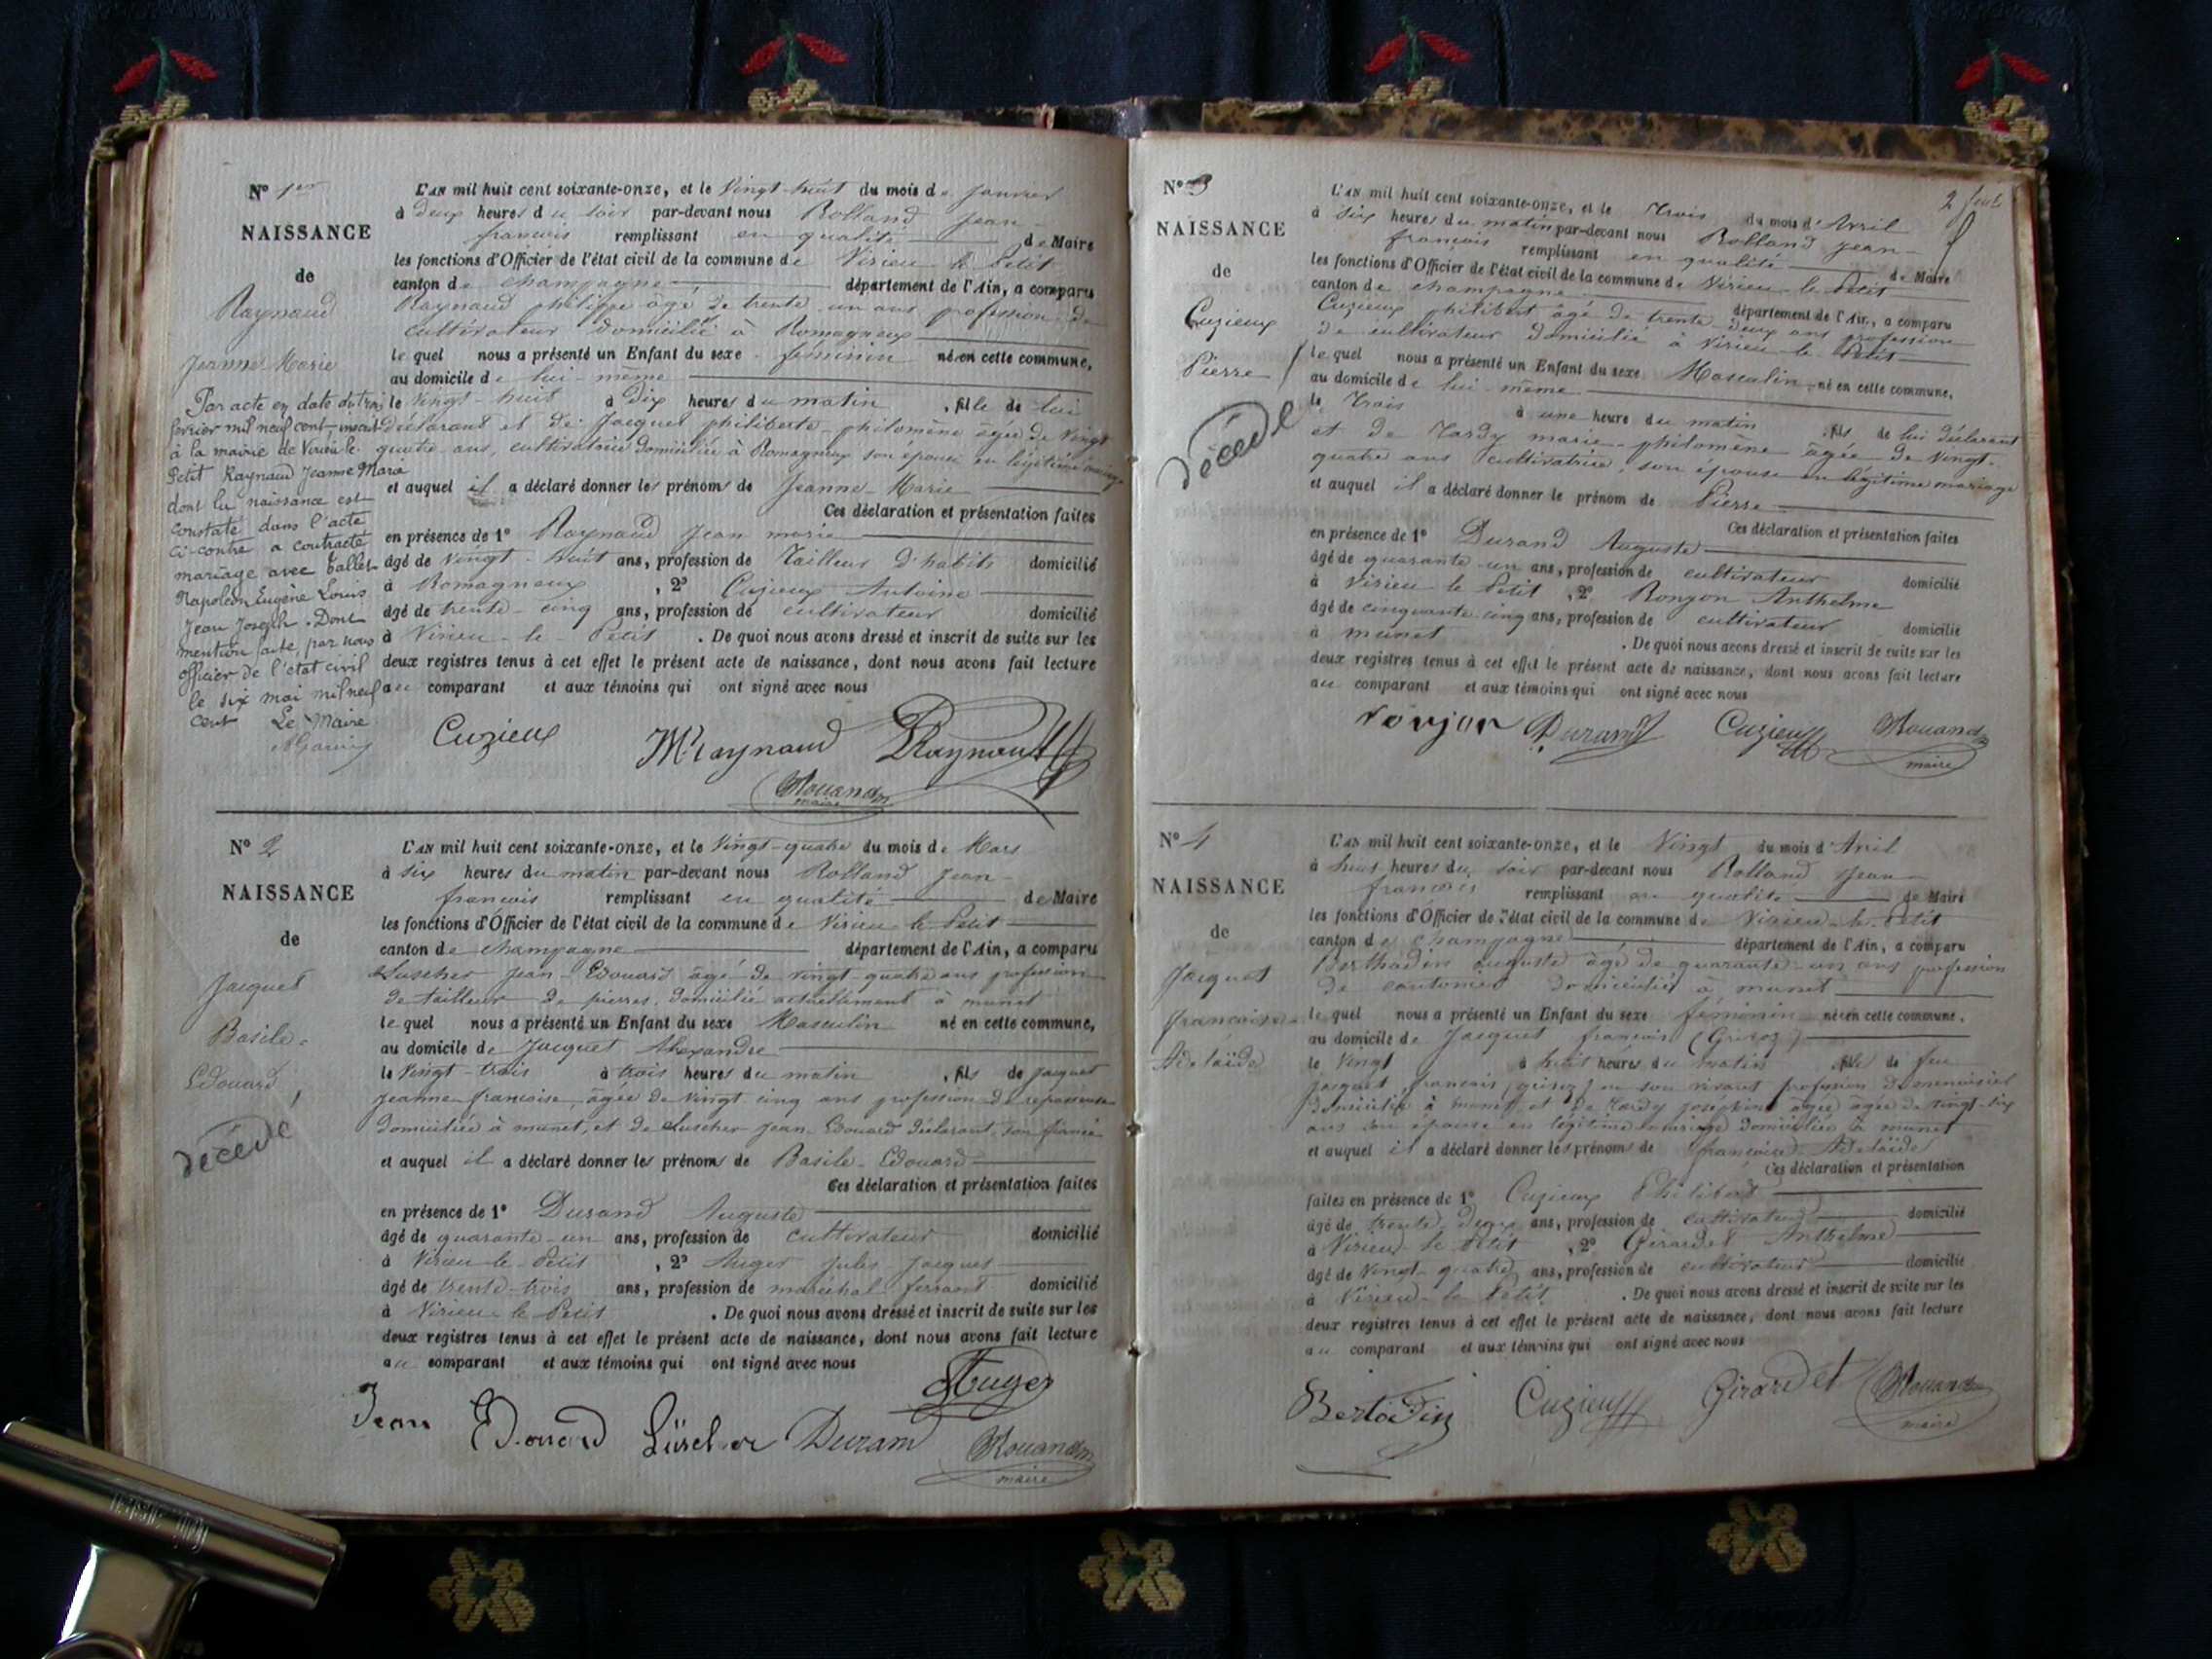 N° 1er
NAISSANCE
de
Raynaud
Jeanne Marie
Par acte en date du trois
février mil neuf cent
à la mairie de Virieu-le-
Petit Raynaud Jeanne Marie
dont la naissance est
constaté dans l'acte
ci-contre a contracté
mariage avec Ballet
Napoléon Eugène Louis
Jean Joseph. Dont
mention faite, par nous
officier de l'état civil
le six mai mil neuf
cent Le Maire
L'AN mil huit cent soixante-onze, et le Vingt-huit du mois de Janvier
à deux heures du soir par-devant nous Rolland Jean-
françois remplissant en qualité de Maire
les fonctions d'Officier de l'état civil de la commune de Virieu le Petit
canton de champagne département de l'Ain, a comparu
Raynaud philippe âgé de trente-un ans profession de
cultivateur domicilié à Romagneux
le quel nous a présenté un Enfant du sexe féminin né en cette commune,
au domicile de lui-même
le vingt-huit à dix heures du matin, fille de lui
déclarant et de Jacquet philiberte-philomène âgée de vingt
quatre ans, cultivatrice domiciliée à Romagneux son épouse en légitime mariage
et auquel il a déclaré donner les prénoms de Jeanne-Marie
Ces déclaration et présentation faites
en présence de 1° Raynaud Jean marie
âgé de vingt-huit ans, profession de Tailleur d'habits domicilié
à Romagneux, 2° Cuzieux Antoine
âgé de trente-cinq ans, profession de cultivateur domicilié
à Virieu-le-Petit. De quoi nous avons dressé et inscrit de suite sur les
deux registres tenus à cet effet le présent acte de naissance, dont nous avons fait lecture
au comparant et aux témoins qui ont signé avec nous
Cuzieux Raynaud Raynaud
maire
N° 2
NAISSANCE
de
Jacquet
Basile-
Edouard
décédé
L'AN mil huit cent soixante-onze, et le Vingt-quatre du mois de Mars
à six heures du matin par-devant nous Rolland Jean-
françois remplissant en qualité de Maire
les fonctions d'Officier de l'état civil de la commune de Virieu le Petit
canton de champagne département de l'Ain, a comparu
Luscher Jean-Edouard âgé de vingt-quatre ans profession
de tailleur de pierres, domicilié actuellement à munet
le quel nous a présenté un Enfant du sexe Masculin né en cette commune,
au domicile de Jacquet Alexandre
le vingt-trois à trois heures du matin, fils de Jacquet
Jeanne françoise, âgée de vingt-cinq ans profession de repasseuse
domiciliée à munet, et de Luscher Jean-Edouard déclarant, son fiancé
et auquel il a déclaré donner les prénoms de Basile-Edouard
Ces déclaration et présentation faites
en présence de 1° Durand Auguste
âgé de quarante-un ans, profession de cultivateur domicilié
à Virieu-le-Petit, 2° Auger Jules Jacques
âgé de trente-trois ans, profession de maréchal ferrant domicilié
à Virieu-le Petit. De quoi nous avons dressé et inscrit de suite sur les
deux registres tenus à cet effet le présent acte de naissance, dont nous avons fait lecture
au comparant et aux témoins qui ont signé avec nous
Auger
Jean Edouard Lüscher Durand
maire
N° 3
NAISSANCE
de
Cuzieux
Pierre
décédé
L'AN mil huit cent soixante-onze, et le Trois du mois d'Avril
à six heures du matin par-devant nous Rolland Jean-
françois remplissant en qualité de Maire
les fonctions d'Officier de l'état civil de la commune de Virieu-le-Petit
canton de champagne département de l'Ain, a comparu
Cuzieux philibert âgé de trente-deux ans profession
de cultivateur domicilié à Virieu-le-Petit
le quel nous a présenté un Enfant du sexe Masculin né en cette commune,
au domicile de lui-même
le Trois à une heure du matin, fils de lui déclarant
et de Tardy marie-philomène âgée de vingt-
quatre ans cultivatrice, son épouse en légitime mariage
et auquel il a déclaré donner le prénom de Pierre
Ces déclaration et présentation faites
en présence de 1° Durand Auguste
âgé de quarante-un ans, profession de cultivateur domicilié
à Virieu le Petit, 2° Bonjon Anthelme
âgé de cinquante-cinq ans, profession de cultivateur domicilié
à munet. De quoi nous avons dressé et inscrit de suite sur les
deux registres tenus à cet effet le présent acte de naissance, dont nous avons fait lecture
au comparant et aux témoins qui ont signé avec nous
Durand Cuzieux
maire
N° 4
NAISSANCE
de
Jacquet
françoise-
Adelaïde
L'AN mil huit cent soixante-onze, et le Vingt du mois d'Avril
à huit heures du soir par-devant nous Rolland Jean-
françois remplissant en qualité de Maire
les fonctions d'Officier de l'état civil de la commune de Virieu-le-Petit
canton de champagne département de l'Ain, a comparu
Berthodin auguste âgé de quarante-un ans profession
de cantonier domicilié à munet
le quel nous a présenté un Enfant du sexe féminin née en cette commune,
au domicile de Jacquet françois
le Vingt à huit heures du matin, fille de feu
Jacquet françois en son vivant profession de menuisier
domicilié à munet et de Tardy Joséphine âgée âgée de vingt-six
ans son épouse en légitime mariage domiciliée à munet
et auquel il a déclaré donner les prénoms de françoise Adelaïde
Ces déclaration et présentation
faites en présence de 1° Cuzieux Philibert
âgé de trente-deux ans, profession de cultivateur domicilié
à Virieu-le Petit, 2° Girardet Anthelme
âgé de Vingt-quatre ans, profession de cultivateur domicilié
à Virieu-le Petit. De quoi nous avons dressé et inscrit de suite sur les
deux registres tenus à cet effet le présent acte de naissance, dont nous avons fait lecture
au comparant et aux témoins qui ont signé avec nous
Cuzieux Girardet
maire